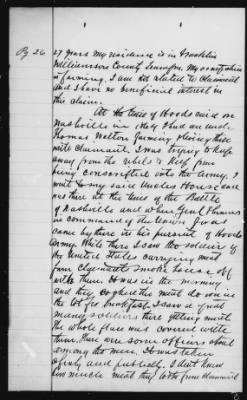 Pg 26
27 years My residence is in Franklin
Williamson County Tennessee. My occupation
is farming. I am not related to Claimant
and I have no beneficial interest in
this claim.
At the time of Hoods raid on
Nashville in 1864 I had an uncle
Thomas Walton farming & living there
with claimant. I was trying to keep
away from the rebels & keep from
being conscripted into the Army. I
went to my said Uncles House and
was there at the time of the Battle
of Nashville and when Genl Thomas
in command of the Union forces
came by there in his pursuit of Hoods
Army. While there I saw the soldiers of
the United States carrying meat
from claimants smoke house off
with them. It was in the morning
and they cooked the meat down in
the lot for breakfast. I saw a great
many soldiers there getting meat.
The whole place was covered with
them. There were some officers about
among the men. It was taken
openly and publicly. I dont know
how much meat they got from claimant